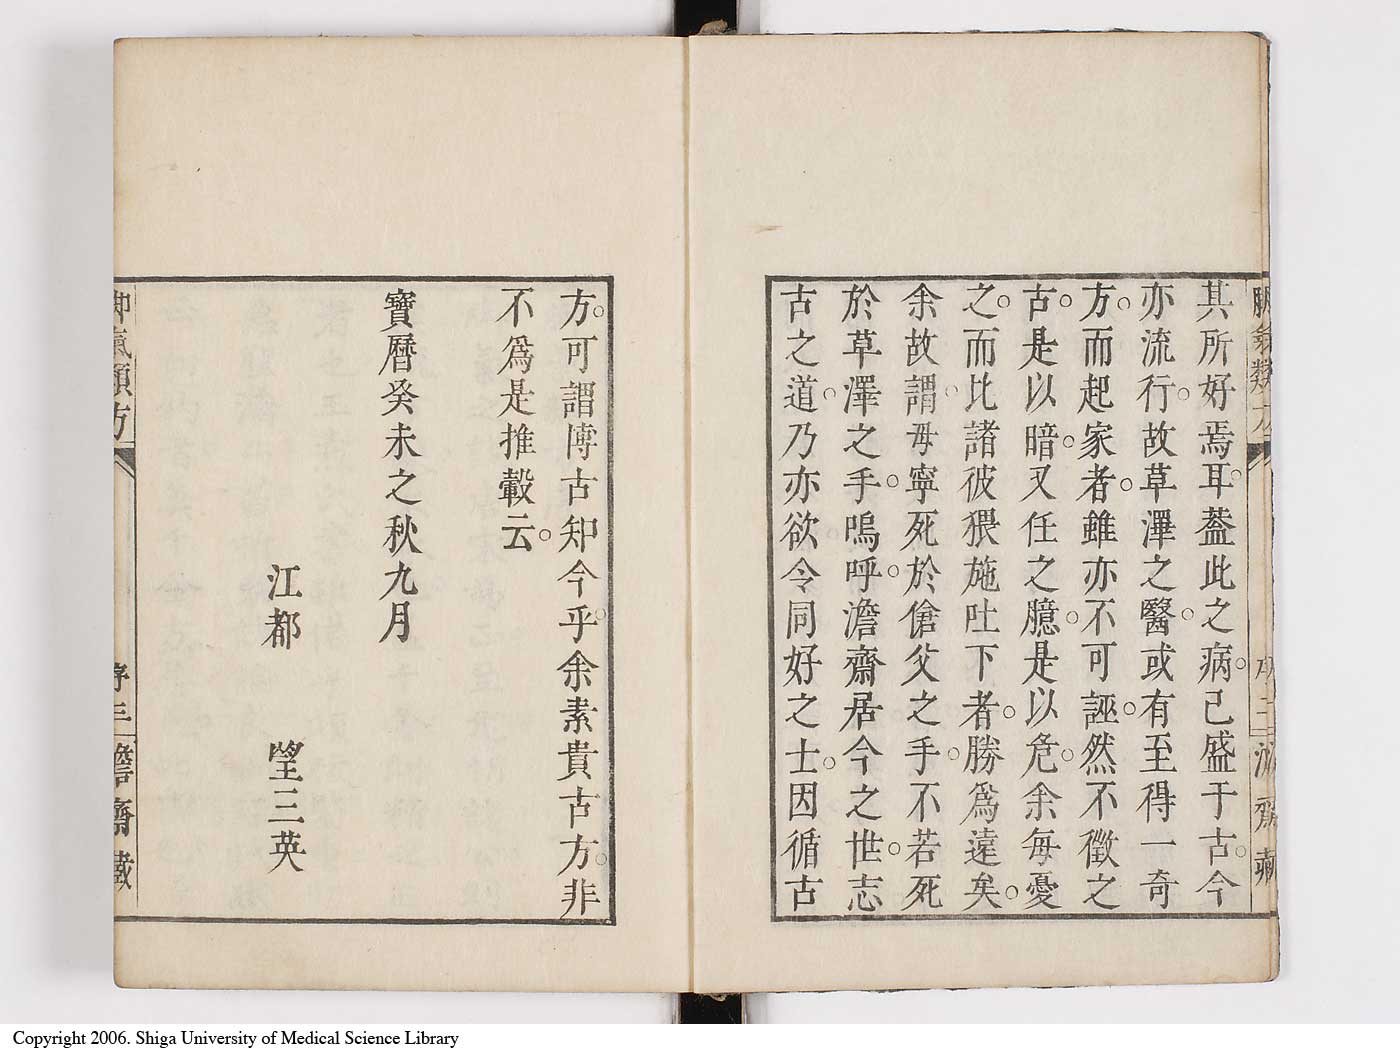 其所好焉耳。蓋此之病。已盛于古。今
亦流行。故草澤之醫。或有至得一奇
方。而起家者。雖亦不可誣。然不徵之
古。是以暗。又任之臆。是以危。余每憂
之。而比諸彼猥施吐下者。勝爲遠矣。
余故謂。毋寧死於傖父之手。不若死
於草澤之手。嗚呼。澹齋居今之世。志
古之道。乃亦欲令同好之士。因循古
方。可謂博古知今乎。余素貴古方。非
不爲是推轂云。
寶曆癸未之秋九月
江都 望三英
脚氣類方
序三
澹齋藏
Copyright 2006. Shiga University of Medical Science Library